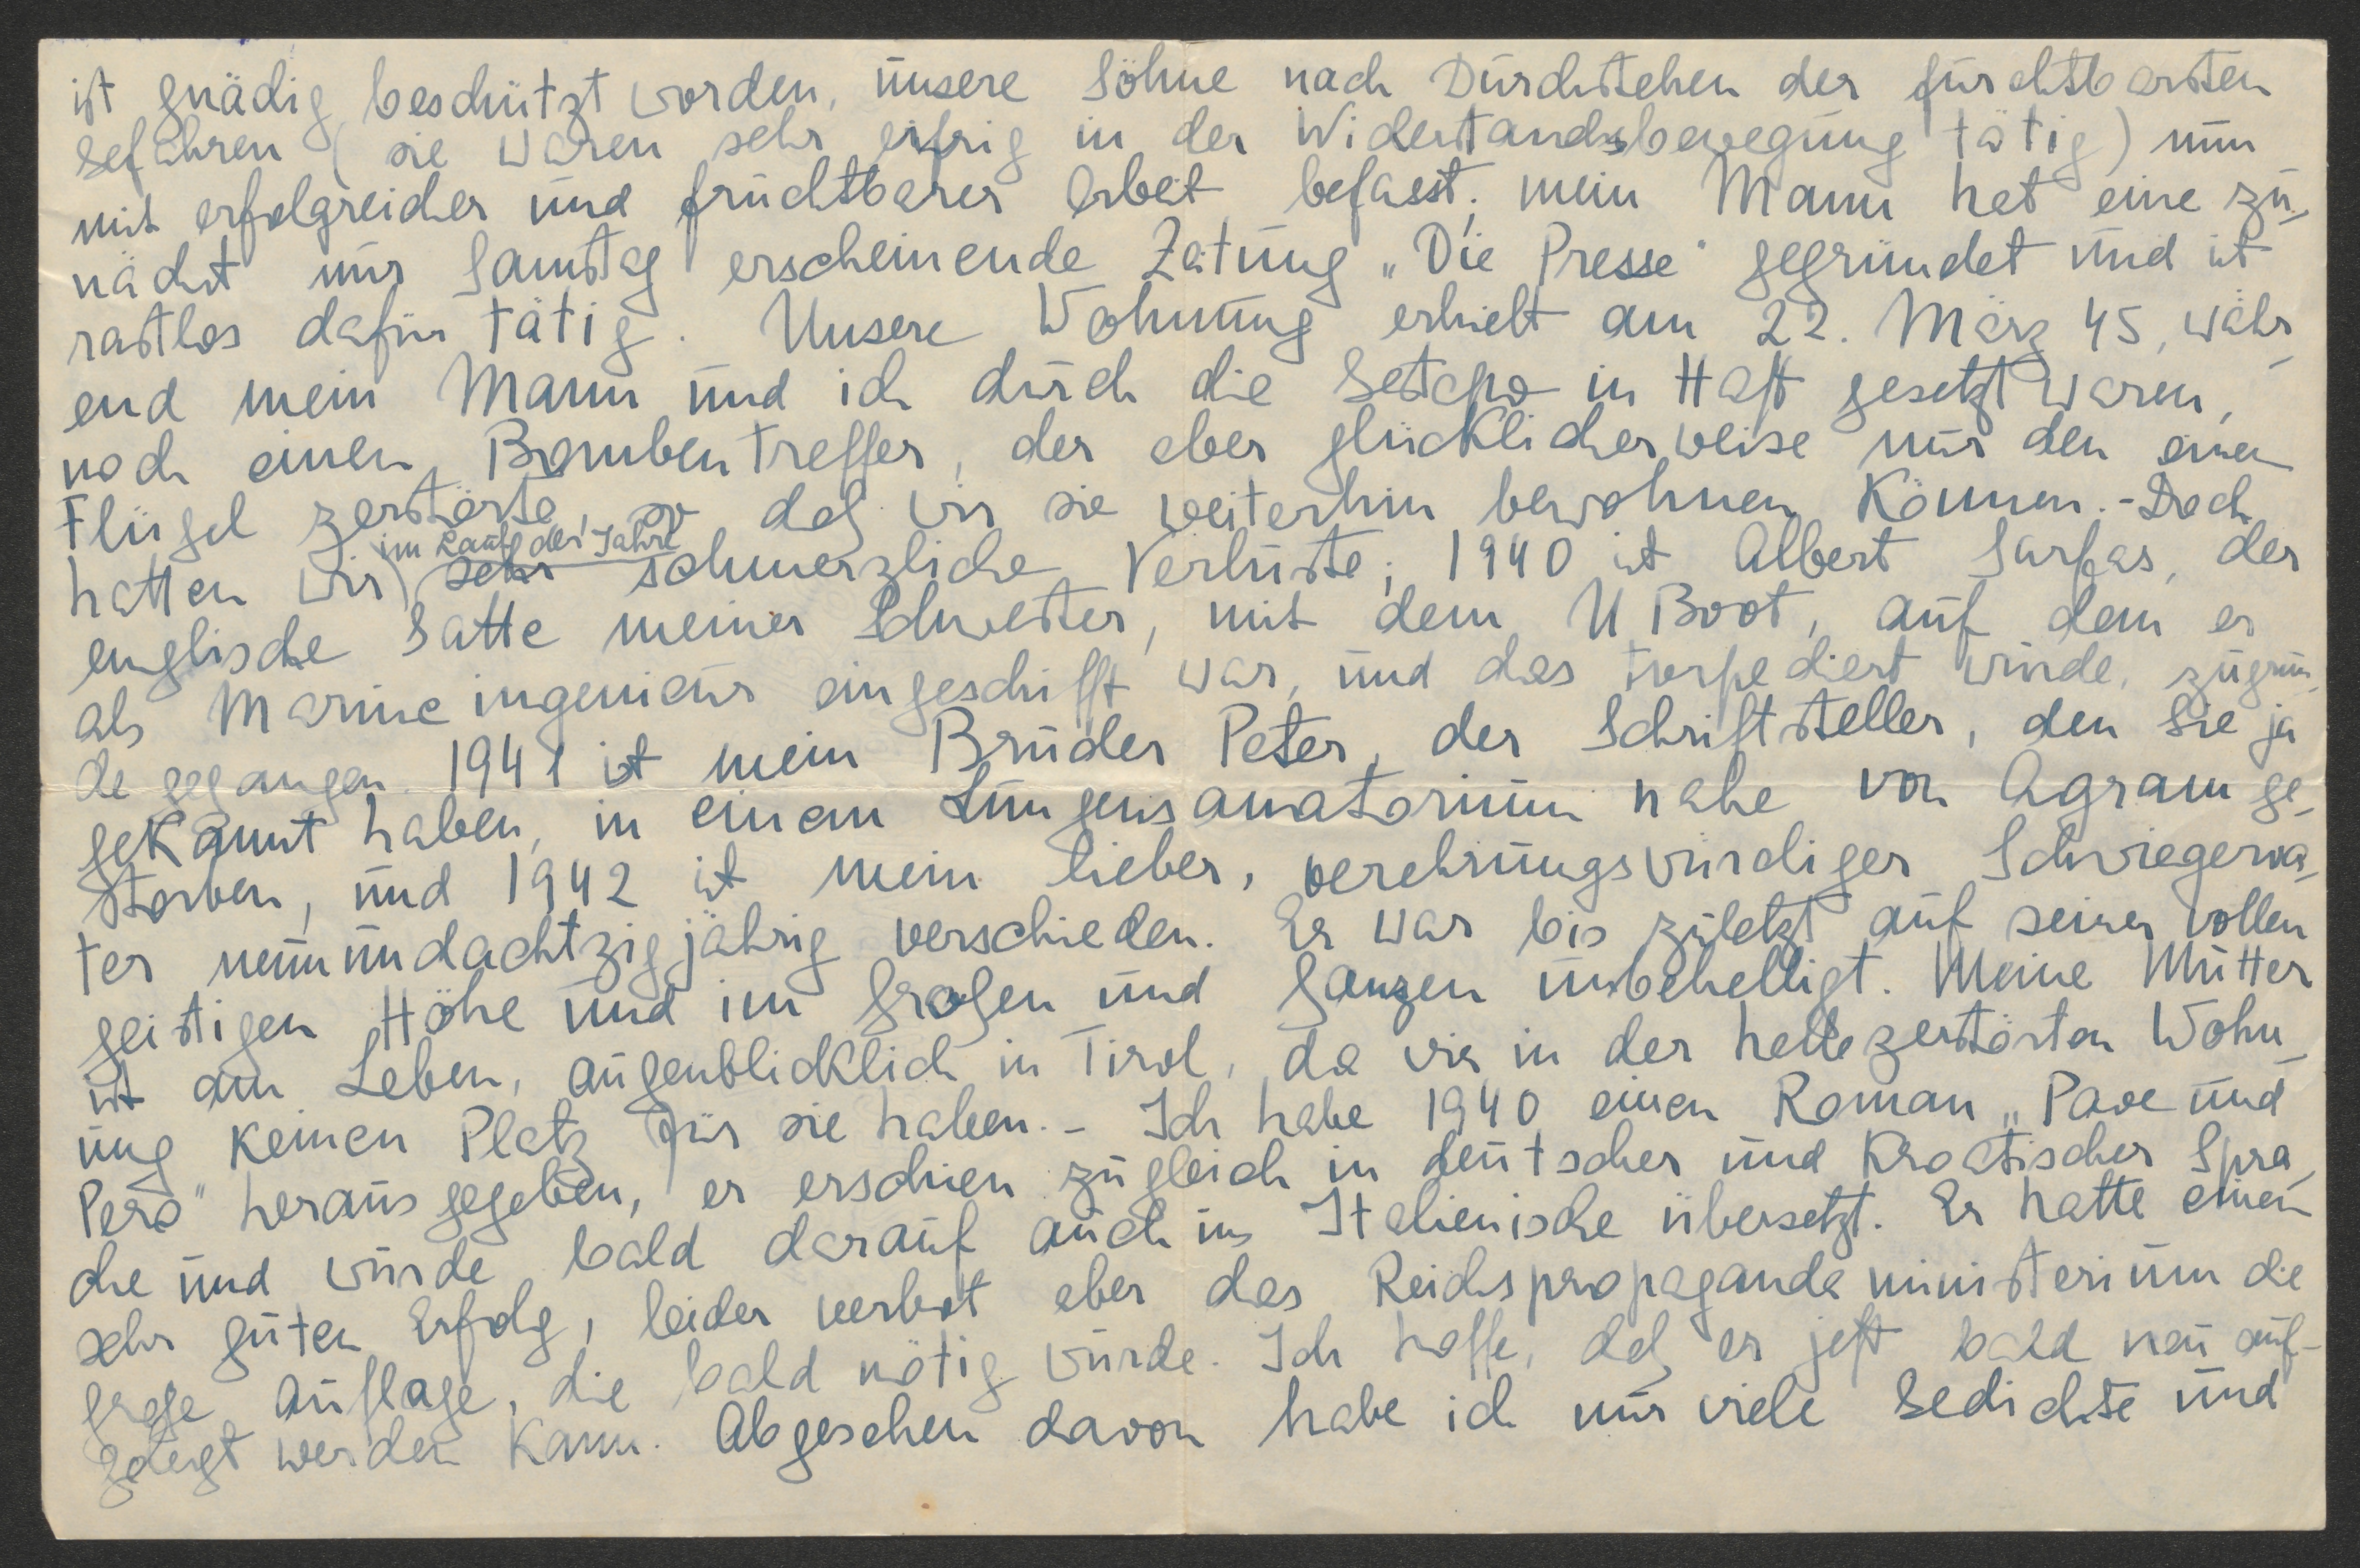 ist gnädig beschützt worden, unsere Söhne nach Durchstehen der furchtbarsten
Gefahren (sie waren sehr eifrig in der Widerstandsbewegung tätig) nun
mit erfolgreicher und fruchtbarer Arbeit befasst; mein Mann hat eine zu-
nächst nur Samstag erscheinende Zeitung „Die Presse" gegründet und ist
rastlos dafür tätig. Unsere Wohnung erhielt am 22. März 45, währ-
end mein Mann und ich durch die Gestapo in Haft gesetzt waren,
noch einen Bombentreffer, der aber glücklicherweise nur den einen
Flügel zerstörte, so daß wir sie weiterhin bewohnen können. - Doch
im Laufe der Jahre
hatten wir sehr schmerzliche Verluste; 1940 ist Albert Sarfas, der
englische Gatte meiner Schwester, mit dem U Boot, auf dem er
als Marineingenieur eingeschifft war, und das torpediert wurde, zugrun-
de gegangen. 1941 ist mein Bruder Peter, der Schriftsteller, den Sie ja
gekannt haben, in einem Lungensanatorium nahe von Agram ge-
storben, und 1942 ist mein lieber, verehrungswürdiger Schwiegerva-
ter neunundachtzigjährig verschieden. Er war bis zuletzt auf seiner vollen
geistigen Höhe und im Großen und Ganzen unbehelligt. Meine Mutter
ist am Leben, augenblicklich in Tirol, da wir in der halbzerstörten Wohn-
ung keinen Platz für sie haben. - Ich habe 1940 einen Roman „Pave und
Pero" herausgegeben, er erschien zugleich in deutscher und kroatischer Spra-
che und wurde bald darauf auch ins Italienische übersetzt. Er hatte einen
sehr guten Erfolg, leider verbot aber das Reichspropagandaministerium die
große Auflage, die bald nötig wurde. Ich hoffe, daß er jetzt bald neu auf-
gelegt werden kann. Abgesehen davon habe ich nur viele Gedichte und